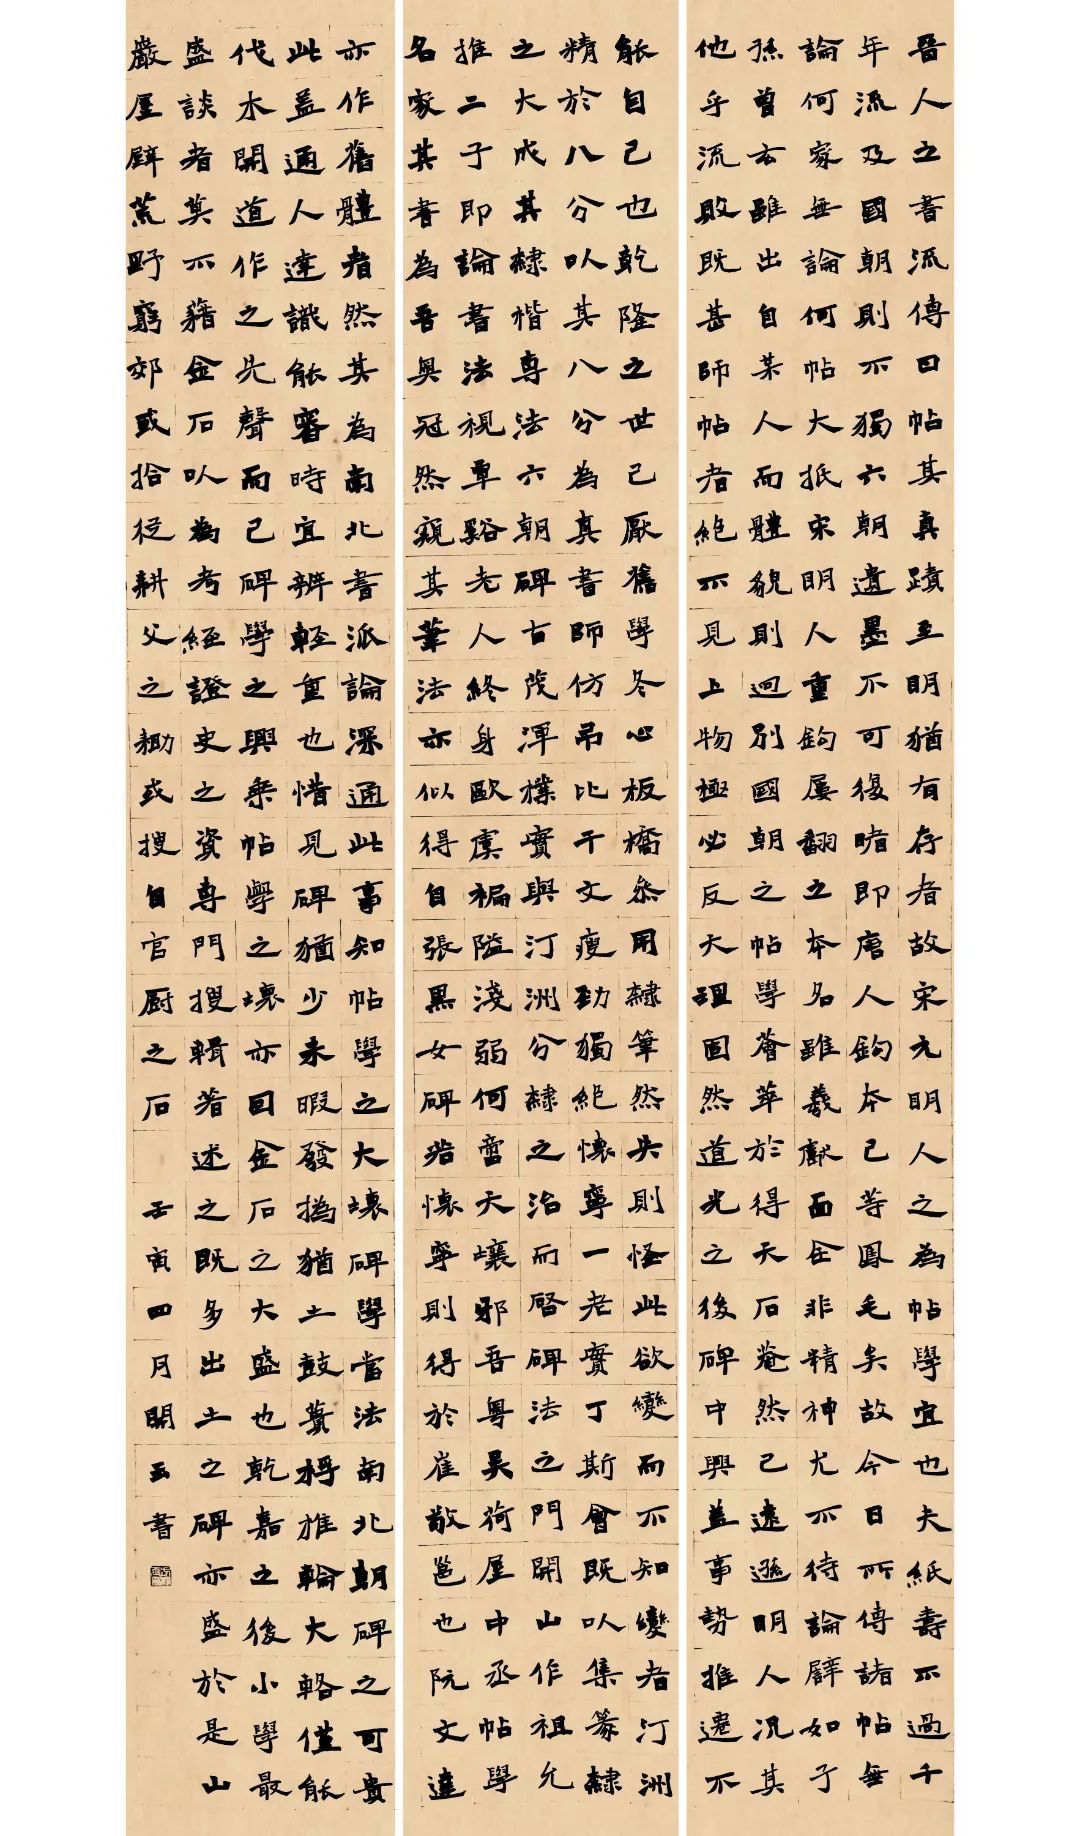 晉人之書流傳曰帖其真蹟至明猶有存者故宋元明人之為帖學宜也夫紙壽不過千
年流及國朝則不獨六朝遺墨不可復睹即唐人鉤本已等鳳毛矣故今日所傳諸帖無
論何家無論何帖大抵宋明人重鉤屢翻之本名雖羲獻面全非精神尤不待論譬如子
孫曾玄雖出自某人而體貌則迥別國朝之帖學薈萃於得天石菴然已遠遜明人況其
他乎流敗既甚師帖者絕不見上物極必反天理固然道光之後碑中興蓋事勢推遷不
能自已也乾隆之世已厭舊學冬心板橋參用隸筆然失則怪此欲變而不知變者汀洲
精於八分以其八分為真書師仿吊比干文瘦勁獨絕懷寧一老實丁斯會既以集篆隸
之大成其隸楷專法六朝碑古茂渾樸實與汀洲分隸之治而啓碑法之門開山作祖允
推二子即論書法視覃谿老人終身歐虞褊隘淺弱何啻天壤邪吾粵吳荷屋中丞帖學
名家其書為吾奧冠然窺其筆法亦似得自張黑女碑若懷寧則得於崔敬邕也阮文達
亦作舊體者然其為南北書派論深通此事知帖學之大壞碑學當法南北朝碑之可貴
此蓋通人達識能審時宜辨輕重也惜見碑猶少未暇發撝猶土鼓蕢桴椎輪大輅僅能
伐木開道作之先聲而已碑學之興乘帖學之壞亦因金石之大盛也乾嘉之後小學最
盛談者莫不藉金石以為考經證史之資專門搜輯著述之既多出土之碑亦盛於是山
巖屋壁荒野窮郊或拾從耕父之鋤或搜自官廚之石 壬寅四月開玉書